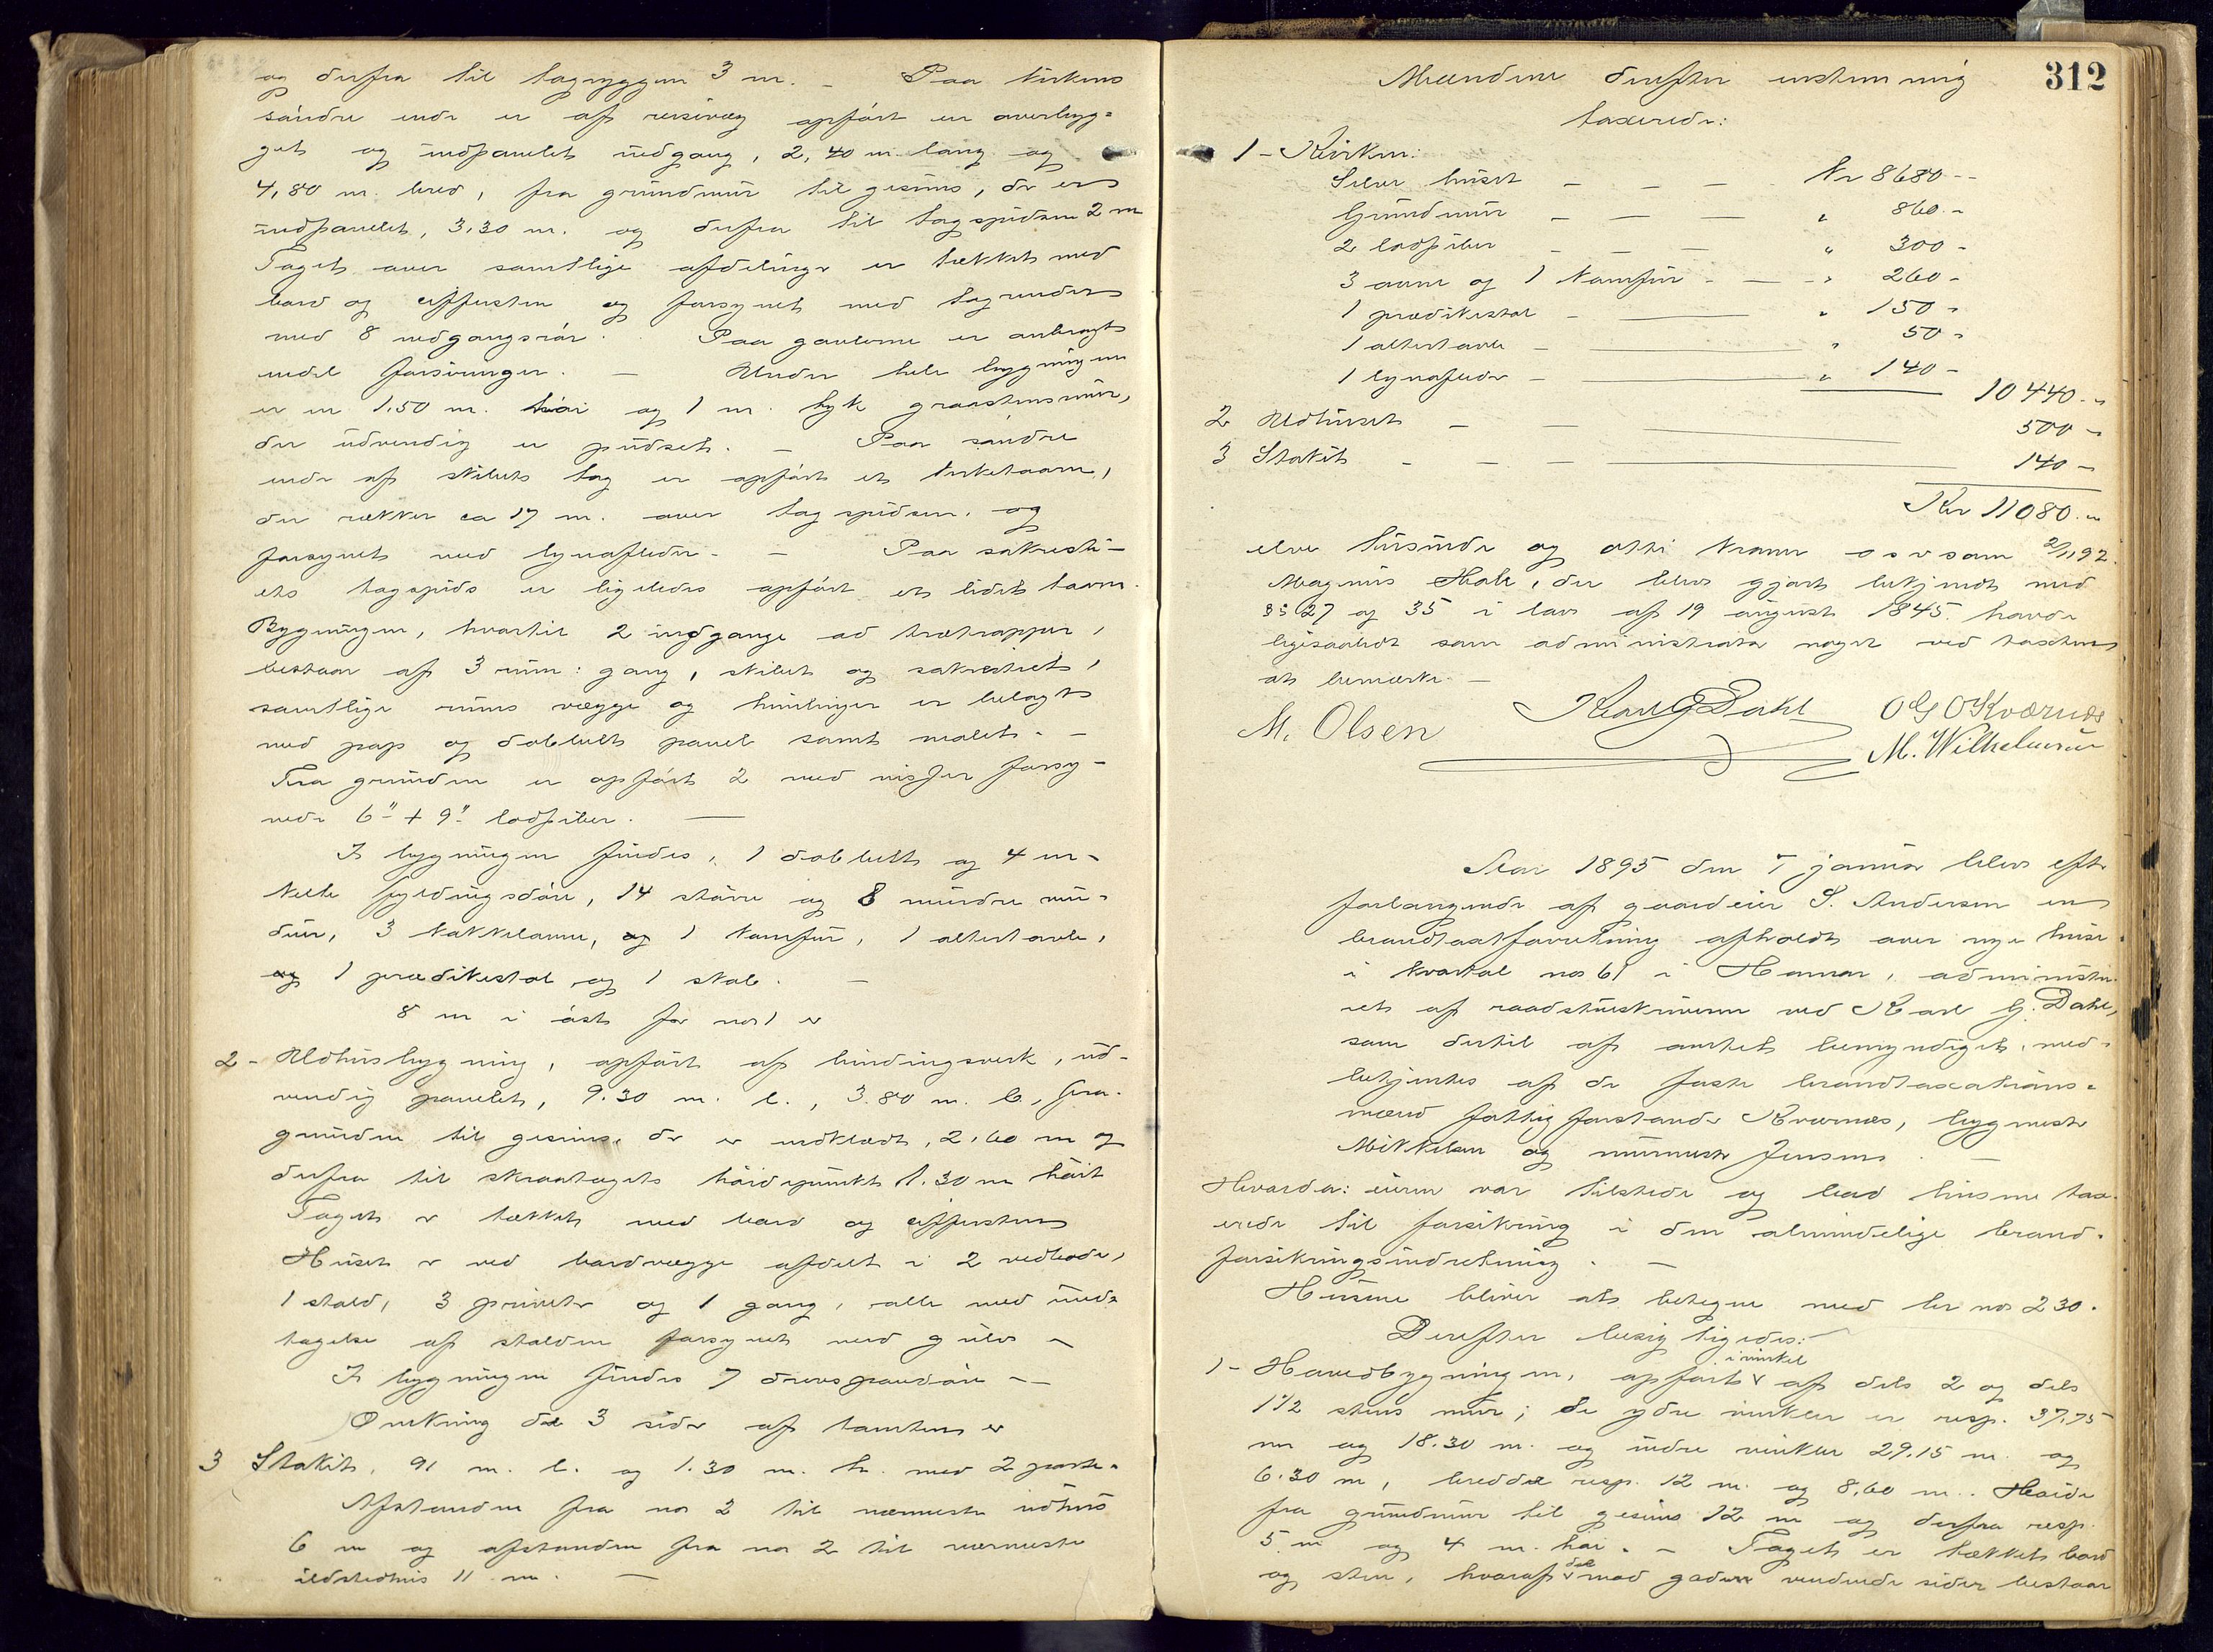 og derfra til tagryggen 3 m. – Paa kirkens
søndre ende er af reisvæg opført en overbyg=
get og indpanelet nedgang, 2,40 m lang og
4,80 m. bred, fra grundmur til gesims, der er
indpanelet, 3,30 m. og derfra til tagspidsen 2 m
Taget over samtlige afdelinger er tækket med
bord og ciffersten og forsynet med tagrender
med 8 nedgangsrør. Paa gavlerne er anbragt
endel forsiringer. – Under hele bygningen
er en 1.50 m. høi og 1 m. tyk graastensmur,
der udvendig er pudset. – Paa søndre
ende af skibets tag er opført et kirketaarn,
der rækker ca 17 m. over tagspidsen, og
forsynet med lynafleder. – Paa sakresti-
ets tagspids er ligeledes opført et lidet taarn.
Bygningen, hvortil 2 indgange ad trætrapper,
bestaar af 3 rum: gang, skibet og sakrestiet,
samtlige rums vægge og himlinger er belagt
med pap og dobbelt panel samt malet. –
Fra grunden er opført 2 med nisjer forsy-
nede 6" + 9" lodpiber. –
I bygningen findes, 1 dobbelt og 4 en-
kelte fyldingsdøre, 14 større og 8 mindre vin-
duer, 3 kakkelovne, og 1 kamfur, 1 altertavle,
og 1 prædikestol og 1 skab. –
8 m i øst for no 1 er
2 – Udhusbygning, opført af bindingsverk, ud-
vendig panelet, 9.30 m. l., 3.80 m. b., fra
grunden til gesims, der er indklædt, 2,60 m og
derfra til skraatagets høidepunkt 1.30 m høit
Taget er tækket med bord og ciffersten
Huset er ved bordvægge afdelt i 2 vedboder,
1 stald, 3 priveter og 1 gang, alle med und-
tagelse af stalden forsynet med gulv –
I bygningen findes 7 døre –
Omkring de 3 sider af tomten er
3 Stakit, 91 m. l. og 1.30 m. h. med 2 porte.
Afstanden fra no 2 til nærmeste udhus
6 m og afstanden fra no 2 til nærmeste
ildstedhus 11 m. –
312
Mændene derefter enstemmig
taxerede:
1 – Kirken:
Selve huset – – – Kr 8680 –
Grundmur – – – " 860 –
2 lodpiber – – – " 300 –
3 ovne og 1 kamfur – – " 260 –
1 prædikestol – – " 150 –
1 altertavle – – " 50 –
1 lynafleder – – " 140 –
10440 –
2 Udhuset – – 500 –
3 Stakit – – – 140 –
Kr 11080 –
elve tusinde og otti kroner o s v som 2/11 92.
Magnus Hals, der blev gjort bekjendt med
§§ 27 og 35 i lov af 19 august 1845 havde
ligesaalidt som administrator noget ved taxten
at bemærke. –
M. Olsen Karl G Dahl O G O Kværnæs
M. Wilhelmsen
Aar 1895 den 7 januar blev efter
forlangende af gaardeier S. Andersen en
brandtaxtforretning afholdt over nye huse
i kvartal no 61 i Hamar, administre-
ret af raadstueskriveren ved Karl G. Dahl,
som dertil af amtet bemyndiget, med-
betjentes af de faste brandtaxations-
mænd fattigforstander Kværnæs, bygmester
Mikkelsen og murmester Jensen. –
Hvorda: eieren var tilstede og bad husene tax-
erede til forsikring i den almindelige brand-
forsikringsindretning. –
Husene bliver at betegne med br no 230.
Derefter besigtigedes: –
1 – Hovedbygningen, opført i vinkel af dels 2 og dels
1 1/2 stens mur; de ydre vinkler er resp. 37,75
m og 18.30 m. og indre vinkler 29.15 m. og
6.30 m, bredde resp. 12 m. og 8,60 m. Høide
fra grundmur til gesims 12 m og derfra resp.
5 m og 4 m. høi. – Taget er tækket bord
og sten, hvoraf det mod gaden vendende sider bestaar